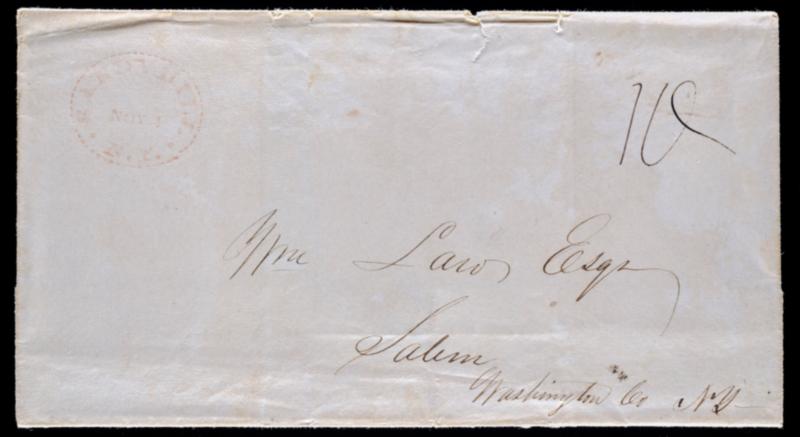 NOV
N.Y.
10
Wm Law Esqr
Salem
Washington Co NY